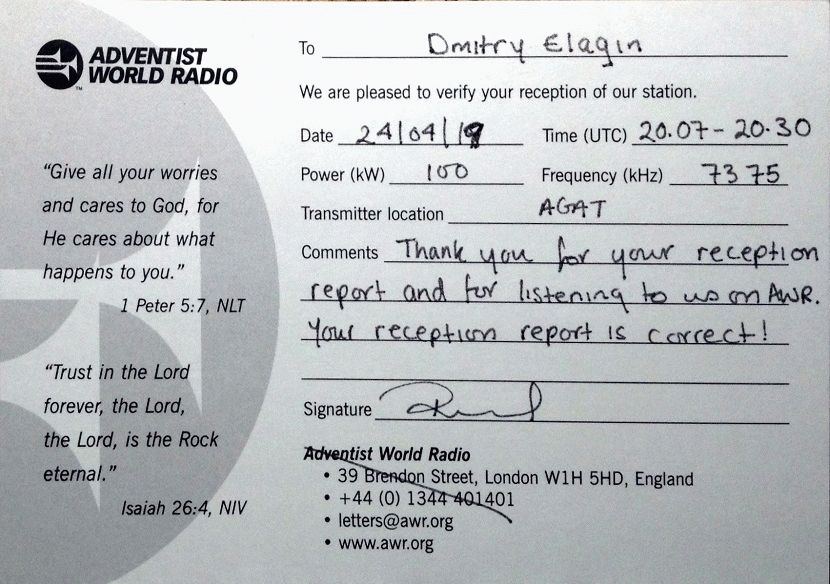 ADVENTIST
WORLD RADIO™
"Give all your worries
and cares to God, for
He cares about what
happens to you."
1 Peter 5:7, NLT
"Trust in the Lord
forever, the Lord,
the Lord, is the Rock
eternal."
Isaiah 26:4, NIV
To Dmitry Elagin
We are pleased to verify your reception of our station.
Date 24/04/19 Time (UTC) 20.07 - 20.30
Power (kW) 100 Frequency (kHz) 7375
Transmitter location AGAT
Comments Thank you for your reception
report and for listening to us on AWR.
Your reception report is correct!
Signature
Adventist World Radio
• 39 Brendon Street, London W1H 5HD, England
• +44 (0) 1344 401401
• letters@awr.org
• www.awr.org